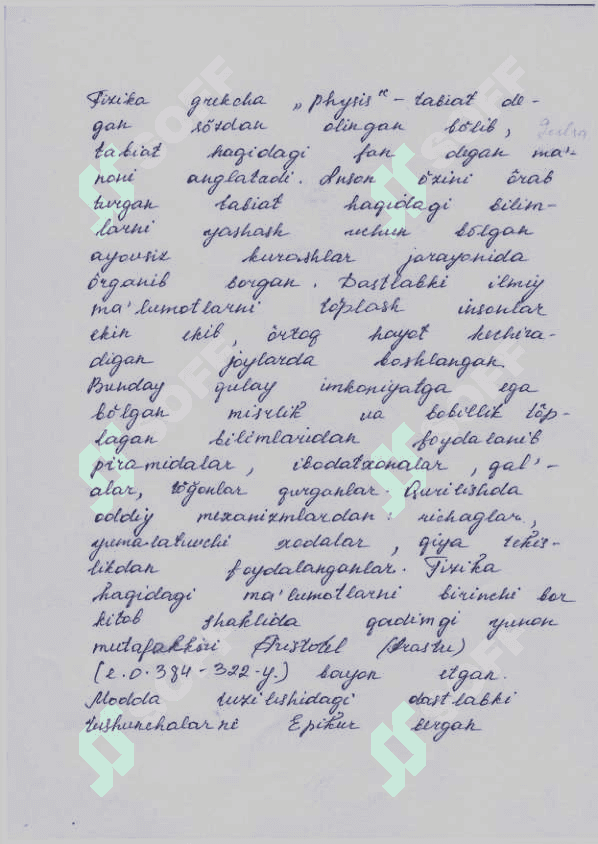 Fizika grekcha „physis“ – tabiat de-
gan sõzdan olingan bõlib,
tabiat haqidagi fan degan ma'-
noni anglatadi. Inson õzini õrab
turgan tabiat haqidagi bilim-
larni yashash uchun bõlgan
ayovsiz kurashlar jarayonida
õrganib borgan. Dastlabki ilmiy
ma'lumotlarni tõplash insonlar
ekin ekib, õrtoq hayot kechira-
digan joylarda boshlangan.
Bunday qulay imkoniyatga ega
bõlgan misrlik va bobillik tõp-
lagan bilimlaridan foydalanib
piramidalar, ibodatxonalar, qal'-
alar, tõğonlar qurganlar. Qurilishda
oddiy mexanizmlardan: richaglar,
yumalatuvchi xodalar, qiya tekis-
likdan foydalanganlar. Fizika
haqidagi ma'lumotlarni birinchi bor
kitob shaklida qadimgi yunon
mutafakkiri Aristotel (Arastu)
(e.o. 384-322-y.) bayon etgan.
Modda tuzilishidagi dastlabki
tushunchalarni Epikur bergan
SOFF
SOFF
SOFF
SOFF
SOFF
SOFF